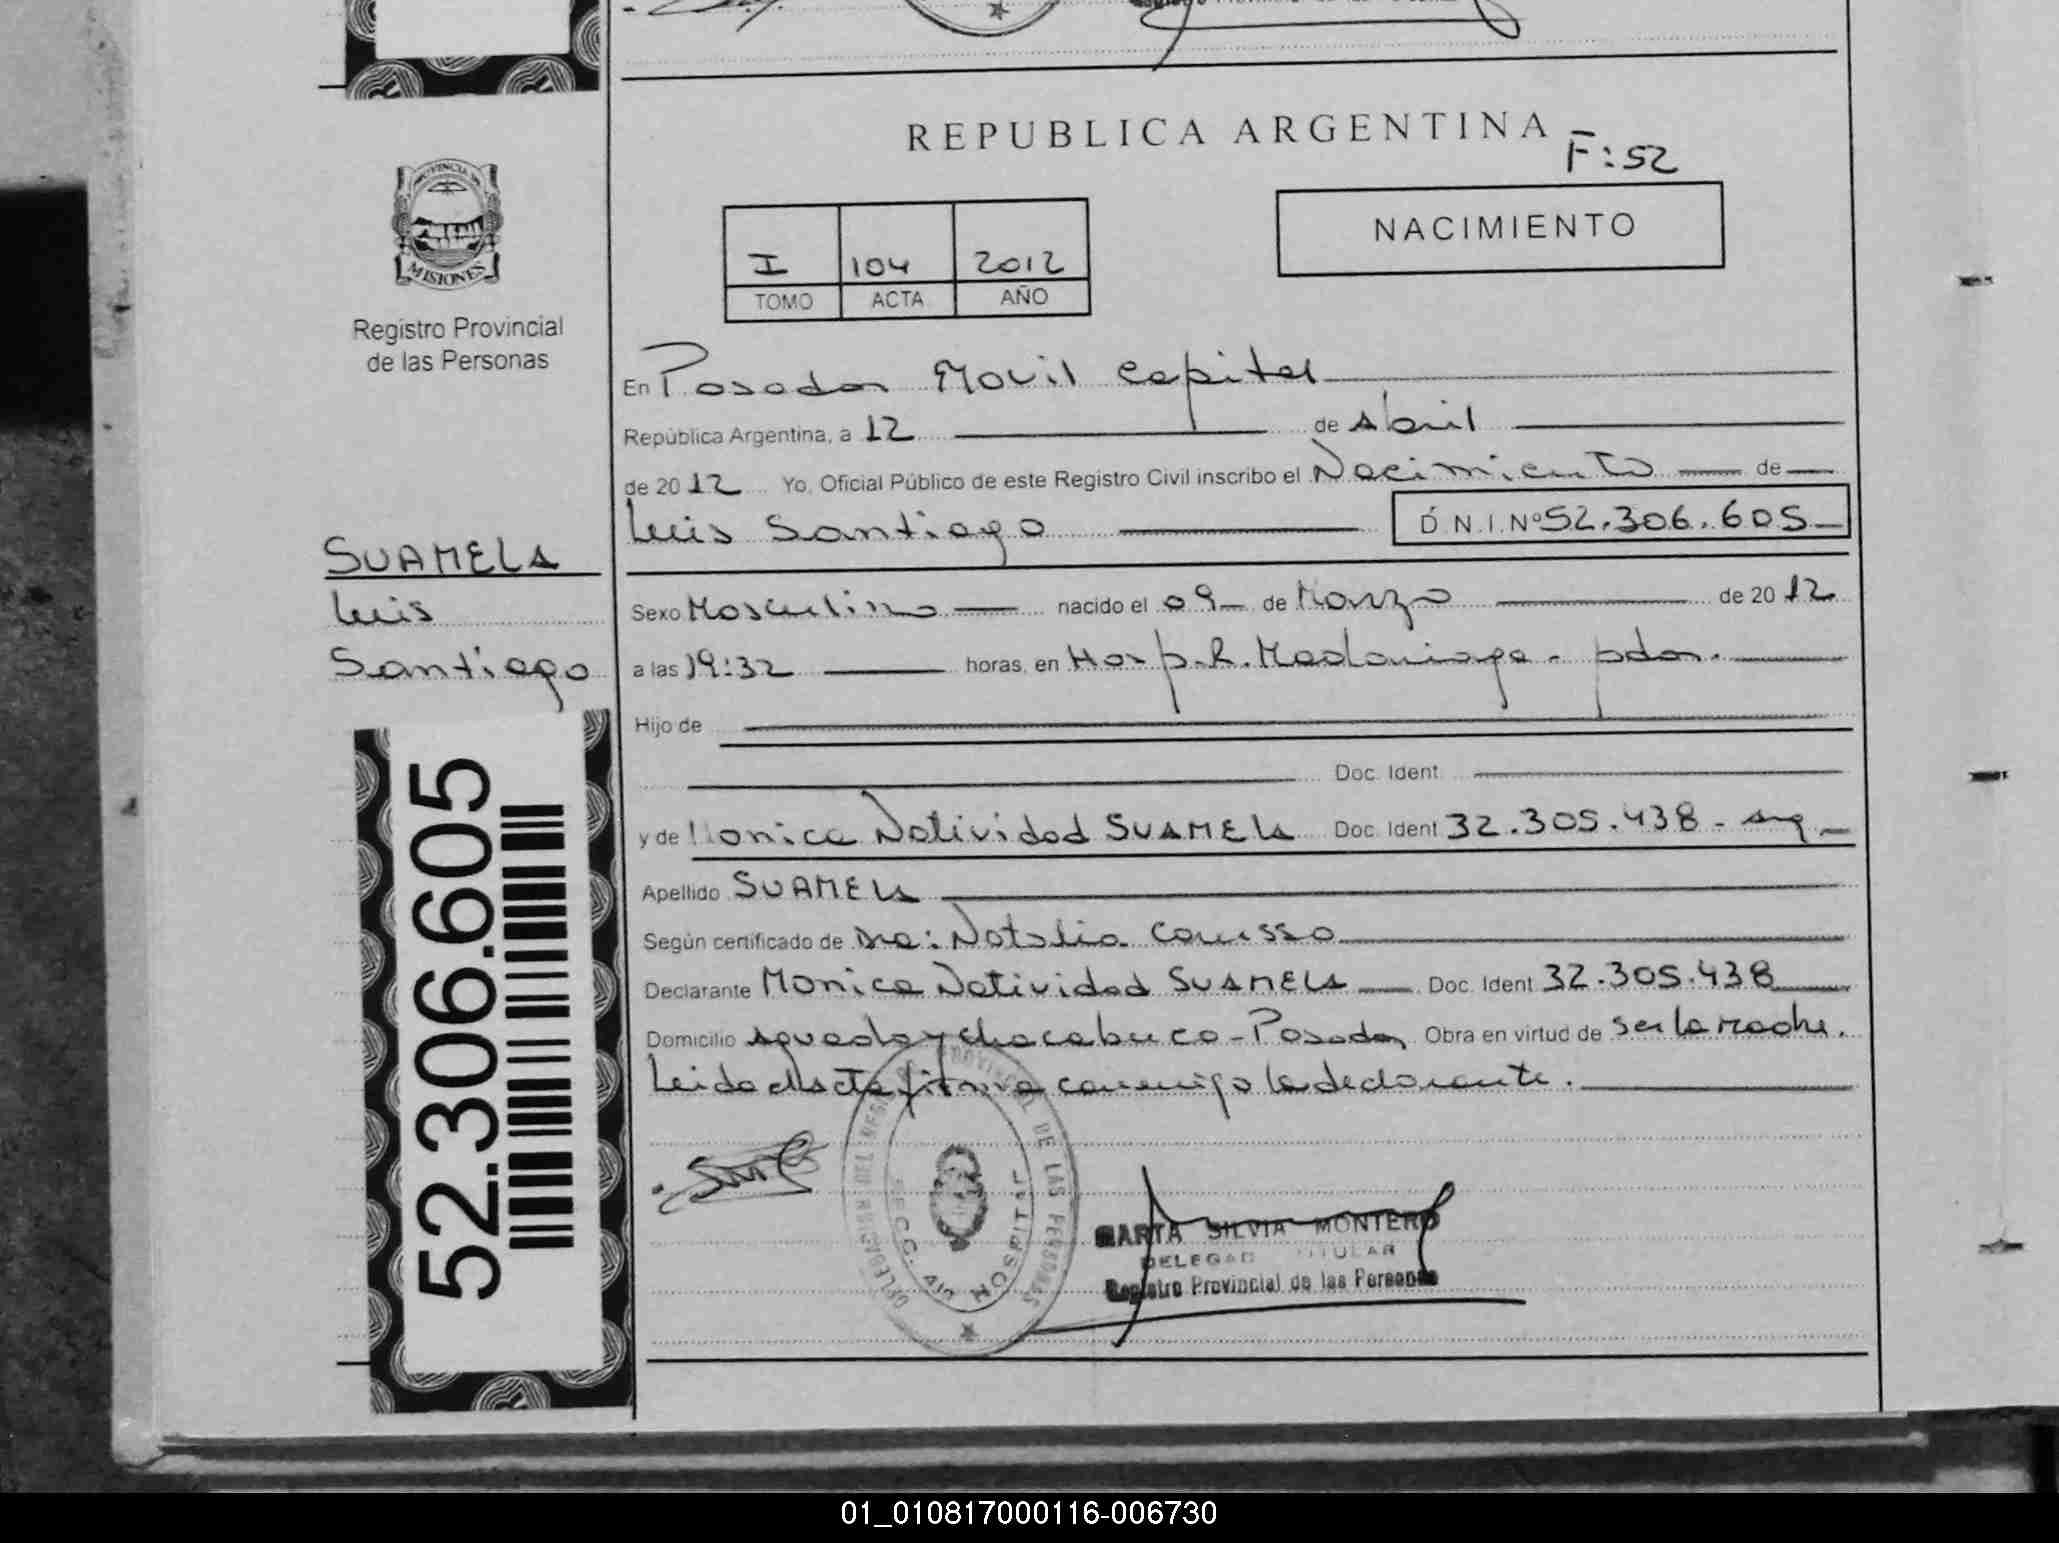 REPUBLICA ARGENTINA
F:52
PROVINCIA DE
MISIONES
Registro Provincial
de las Personas
I 104 2012
TOMO ACTA AÑO
NACIMIENTO
En Posadas Movil Capital
República Argentina, a 12 de Abril
de 2012 Yo, Oficial Público de este Registro Civil inscribo el Nacimiento de
Luis Santiago D.N.I.Nº 52.306.605
SUAMELA
Luis
Santiago
Sexo Masculino nacido el 09 de Marzo de 2012
a las 19:32 horas, en Hosp. R. Madariaga - pdas.
Hijo de
Doc. Ident.
y de Monica Natividad SUAMELA Doc. Ident 32.305.438 - arg
Apellido SUAMELA
Según certificado de Dra: Natalia
Declarante Monica Natividad SUAMELA Doc. Ident 32.305.438
Domicilio Aguado y Chacabuco - Posadas Obra en virtud de ser la madre.
Leida el Acta firma conmigo la declarante.
52.306.605
PROVINCIAL DE LAS PERSONAS
MARTA SILVIA MONTERO
DELEGADA TITULAR
Registro Provincial de las Personas
01_010817000116-006730